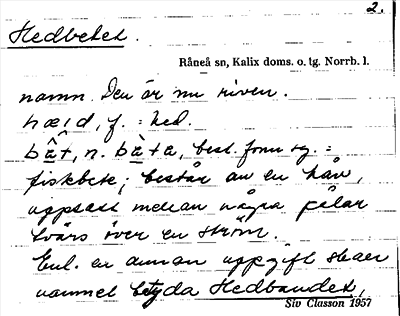 2.
Hedbetet.
Råneå sn, Kalix doms. o. tg. Norrb. l.
namn. Den är nu riven.
hæid, f. = hed.
bа̂t, n. bàta, best. form sg. =
fiskbete; består av en håv,
uppsatt mellan några pålar
tvärs över en ström.
Enl. en annan uppgift skaer
namnet betyda Hedbandet,
Siv Classon 1957